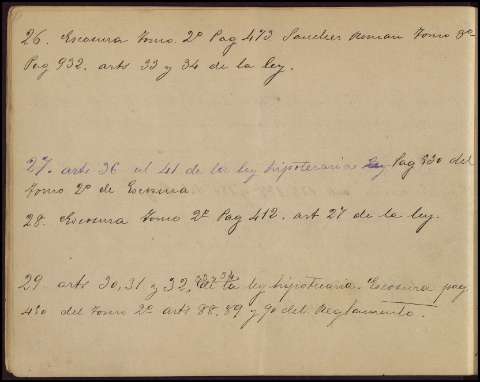 26. Escosura Tomo 2º Pag 473 Sanchez Roman Tomo 3º
Pag 932. arts 33 y 34 de la ley.
27. arts 36 al 41 de la ley hipotecaria Pag 330 del
Tomo 2º de Escosura.
28. Escosura Tomo 2º Pag 412. art 27 de la ley.
29 arts 30, 31 y 32, 33 y 34 de la ley hipotecaria. Escosura pag.
430 del Tomo 2º arts 88. 89 y 90 del Reglamento.